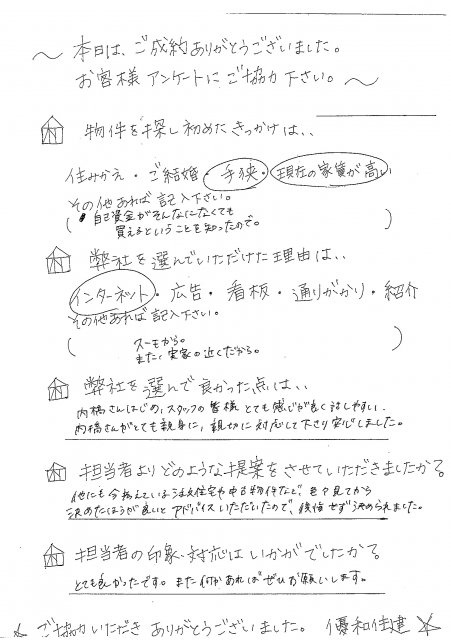 ～ 本日は、ご成約ありがとうございました。
お客様アンケートにご協力下さい。～
物件を探し初めたきっかけは、、
住みかえ・ご結婚・手狭・現在の家賃が高い
その他あれば記入下さい。
( 自己資金がそんなになくても
買えるということを知ったので。 )
弊社を選んでいただけた理由は、、
インターネット・広告・看板・通りがかり・紹介
その他あれば記入下さい。
( スーモから。
また、実家の近くだから。 )
弊社を選んで良かった点は、、
内橋さんはじめ、スタッフの皆様とても感じが良く話しやすい。
内橋さんがとても親身に、親切に対応して下さり安心しました。
担当者よりどのような提案をさせていただきましたか?
他にも今積んでいる注文住宅や中古物件など、色々見てから
決めたほうが良いとアドバイスいただいたので、後悔せず決められました。
担当者の印象・対応はいかがでしたか?
とても良かったです。また何かあればぜひお願いします。
ご協力いただきありがとうございました。 優和住建